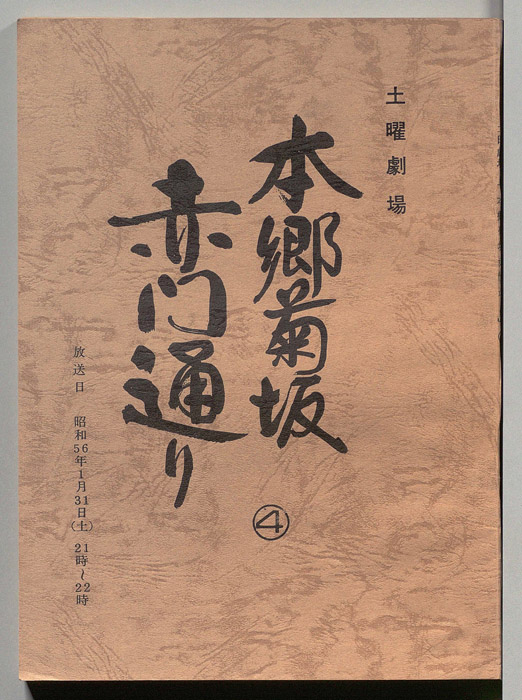 土曜劇場
本郷菊坂
赤门通り
④
放送日 昭和56年1月31日(土) 21時~22時